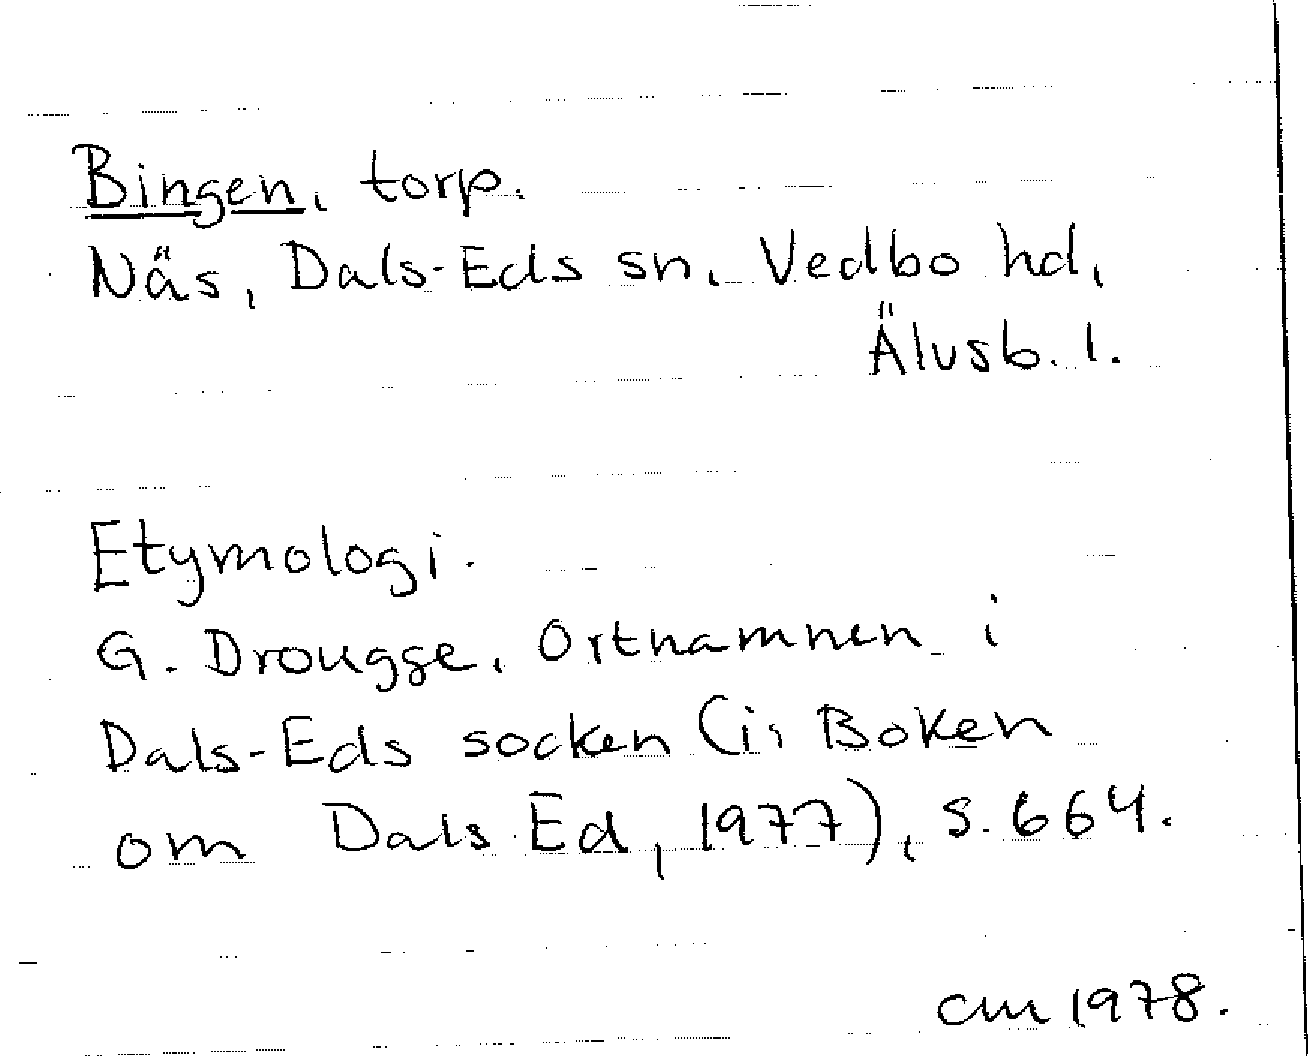 Bingen, torp.
Näs, Dals-Eds sn, Vedbo hd,
Älvsb. l.
Etymologi.
G. Drougge, Ortnamnen i
Dals-Eds socken (i: Boken
om Dals Ed, 1977), s. 664.
cm 1978.